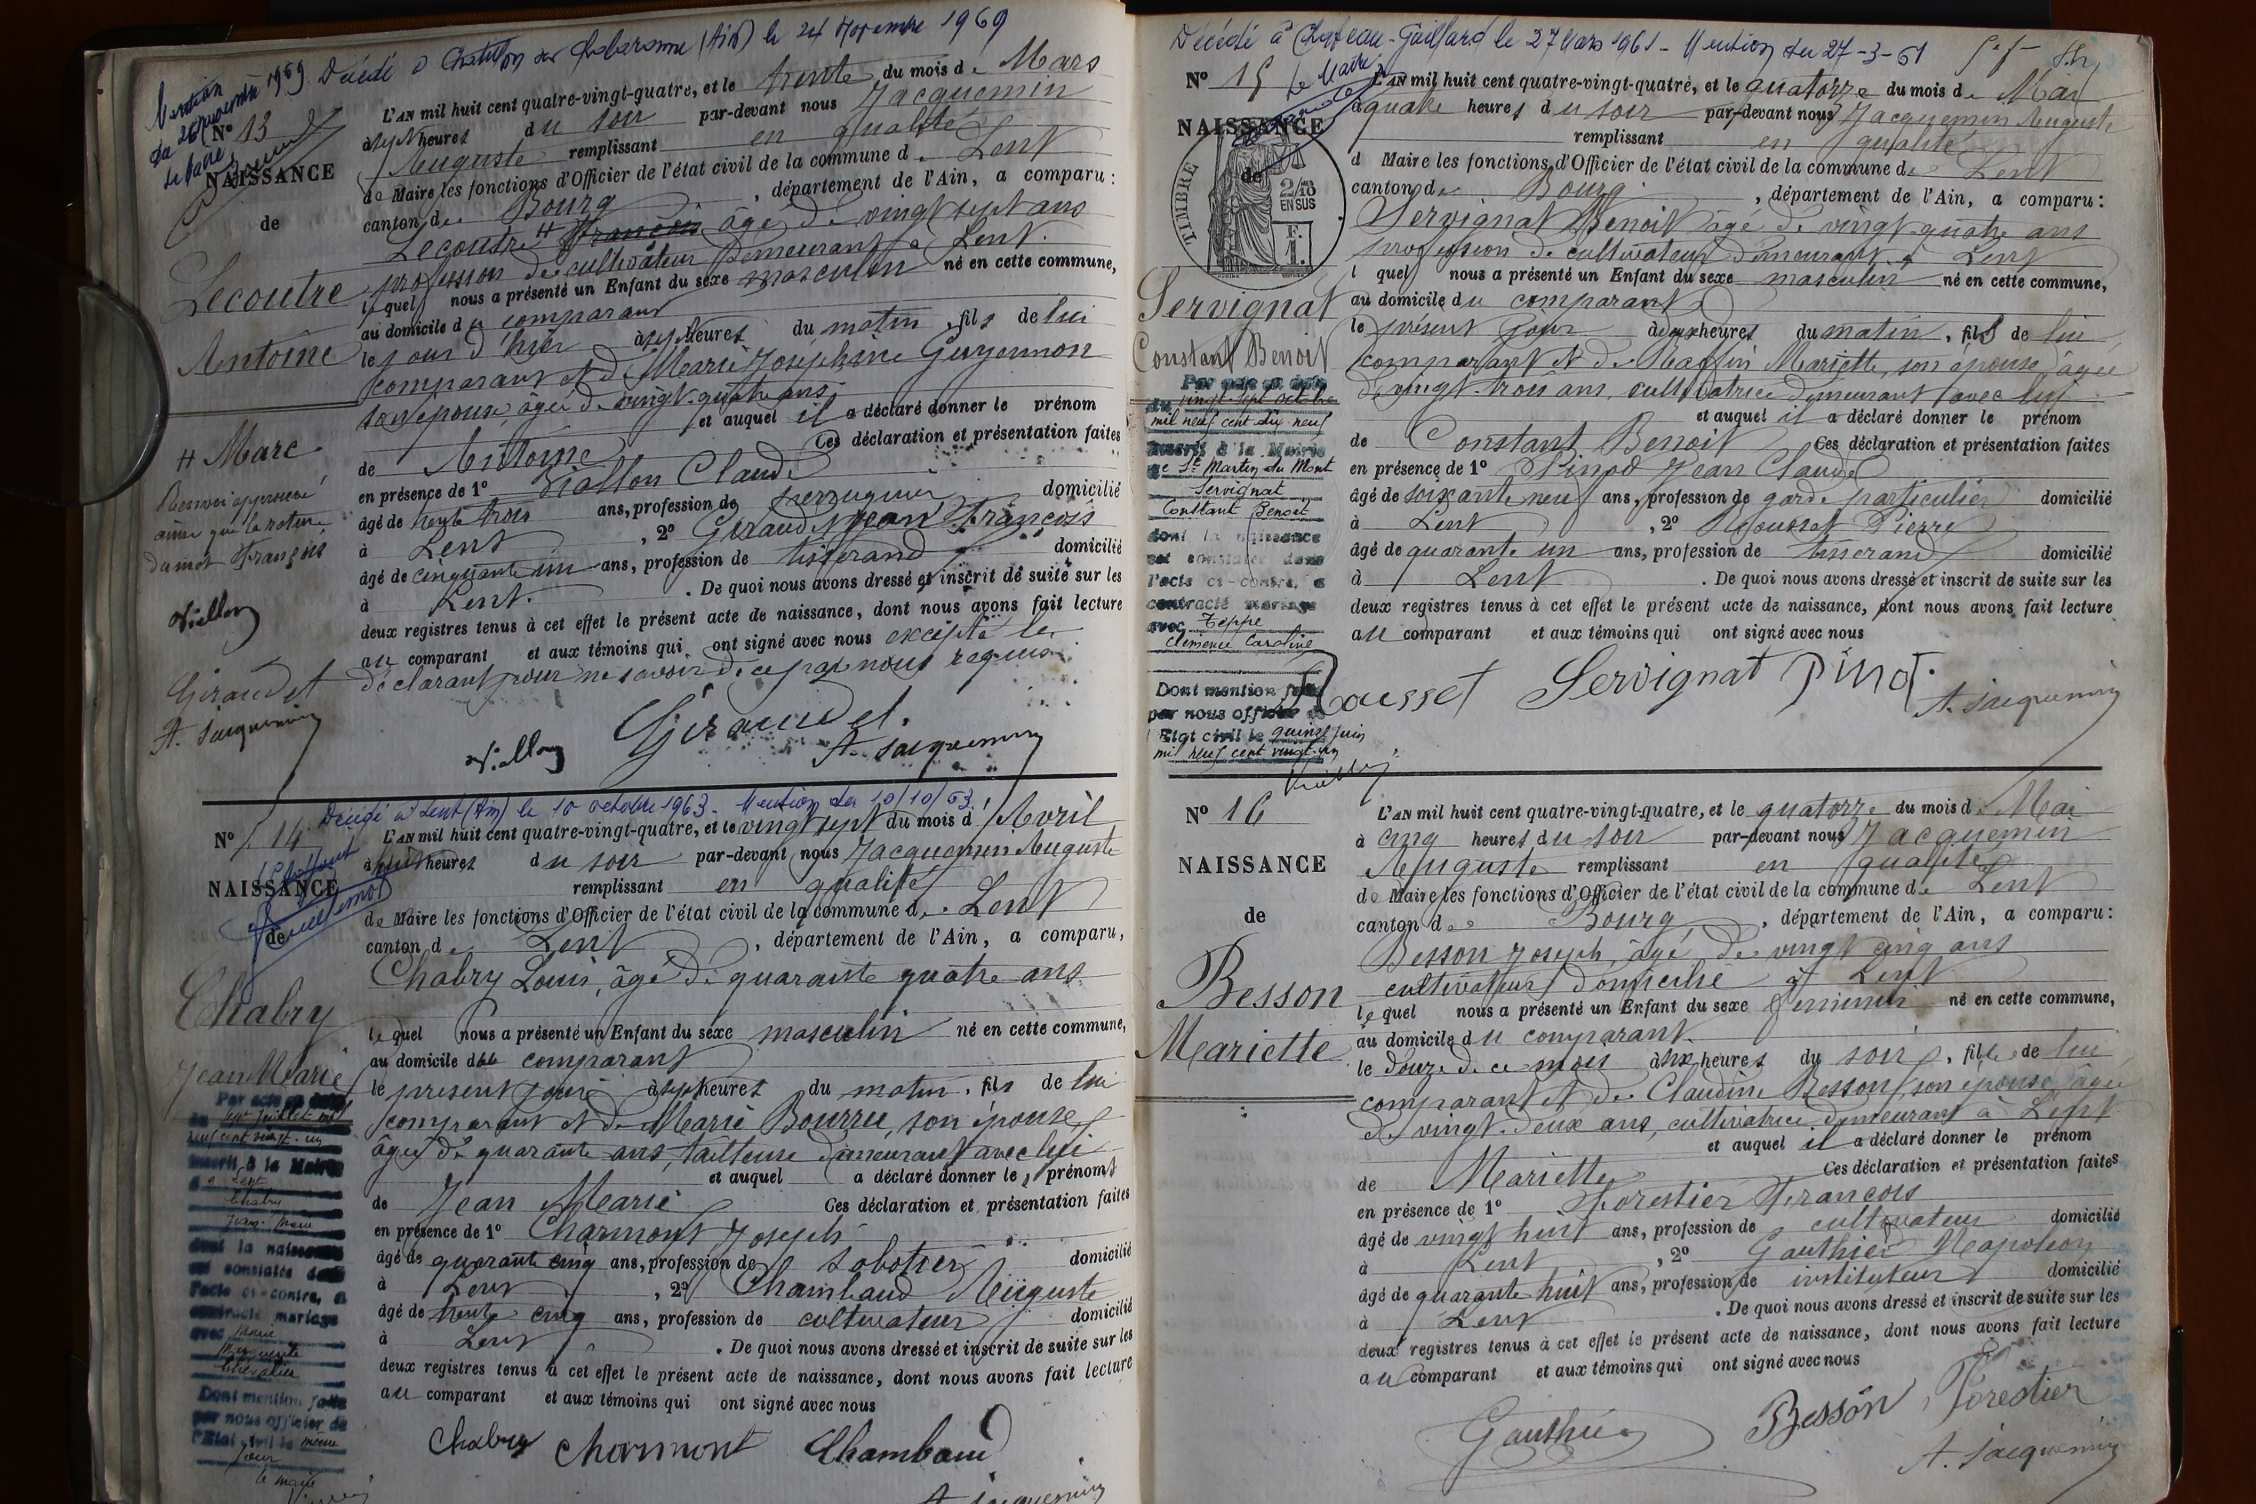 Décédé à Chatillon sur Chalaronne (Ain) le 24 Novembre 1969
Mention
du 26 novembre 1969
le Maire
N° 13
NAISSANCE
de
Lecoutre
Antoine
# Marc
Renvoi approuvé
ainsi que la rature
du mot François
Viallon
Giraudet
A. Jacquemin
L'AN mil huit cent quatre-vingt-quatre, et le trente du mois de Mars
à sept heures du soir par-devant nous Jacquemin
Auguste remplissant en qualité
de Maire les fonctions d'Officier de l'état civil de la commune de Lent
canton de Bourg, département de l'Ain, a comparu:
Lecoutre # François âgé de vingt sept ans
profession de cultivateur demeurant à Lent.
lequel nous a présenté un Enfant du sexe masculin né en cette commune,
au domicile du comparant
le jour d'hier à sept heures du matin, fils de lui
comparant et de Marie Joséphine Guyennon
son épouse, âgée de vingt-quatre ans
et auquel il a déclaré donner le prénom
de Antoine Ces déclaration et présentation faites
en présence de 1° Viallon Claude
âgé de trente trois ans, profession de domicilié
à Lent, 2° Giraudet Jean François
âgé de cinquante un ans, profession de tisserand domicilié
à Lent. De quoi nous avons dressé et inscrit de suite sur les
deux registres tenus à cet effet le présent acte de naissance, dont nous avons fait lecture
au comparant et aux témoins qui ont signé avec nous excepté le
déclarant pour ne savoir de ce par nous requis.
Viallon Giraudet.
A. Jacquemin
Décédé à Lent (Ain) le 10 octobre 1963. Mention du 10/10/63.
N° 14
NAISSANCE
de
Chabry
Jean Marie
Par acte en date
du sept juillet mil
neuf cent vingt-un
inscrit à la Mairie
de Lent
Chabry
Jean-Marie
dont la naissance
est constatée dans
l'acte ci-contre, a
contracté mariage
avec Marie
Chevalier
Dont mention faite
par nous officier de
l'Etat civil le même
jour
le maire
L'AN mil huit cent quatre-vingt-quatre, et le vingt sept du mois d'Avril
à huit heures du soir par-devant nous Jacquemin Auguste
remplissant en qualité
de Maire les fonctions d'Officier de l'état civil de la commune de Lent
canton de Lent, département de l'Ain, a comparu,
Chabry Louis, âgé de quarante quatre ans
lequel nous a présenté un Enfant du sexe masculin né en cette commune,
au domicile du comparant
le présent jour à sept heures du matin, fils de lui
comparant et de Marie Bourrue, son épouse
âgée de quarante ans, tailleuse demeurant avec lui
et auquel a déclaré donner les prénoms
de Jean Marie Ces déclaration et présentation faites
en présence de 1° Charmont Joseph
âgé de quarante cinq ans, profession de sabotier domicilié
à Lent, 2° Chambaud Auguste
âgé de trente cinq ans, profession de cultivateur domicilié
à Lent. De quoi nous avons dressé et inscrit de suite sur les
deux registres tenus à cet effet le présent acte de naissance, dont nous avons fait lecture
au comparant et aux témoins qui ont signé avec nous
Chabry Charmont Chambaud
A. Jacquemin
Décédé à Chateau-Gaillard le 27 Mars 1961 - Mention du 27-3-61
N° 15 le Maire
NAISSANCE
de
TIMBRE
2/10 EN SUS
F. 1.
Servignat
Constant Benoit
Par acte en date
du vingt sept octobre
mil neuf cent dix neuf
inscrit à la Mairie
de St Martin du Mont
Servignat
Constant Benoit
dont la naissance
est constatée dans
l'acte ci-contre, a
contracté mariage
avec Teppe
Clémence Caroline
Dont mention faite
par nous officier de
l'Etat civil le quinze juin
mil neuf cent vingt-un
L'AN mil huit cent quatre-vingt-quatre, et le quatorze du mois de Mai
à quatre heures du soir par-devant nous Jacquemin Auguste
remplissant en qualité
d Maire les fonctions d'Officier de l'état civil de la commune de Lent
canton de Bourg, département de l'Ain, a comparu:
Servignat Benoit âgé de vingt-quatre ans
profession de cultivateur demeurant à Lent
l quel nous a présenté un Enfant du sexe masculin né en cette commune,
au domicile du comparant
le présent jour à deux heures du matin, fils de lui
comparant et de Mariette, son épouse, âgée
de vingt-trois ans, cultivatrice demeurant avec lui
et auquel il a déclaré donner le prénom
de Constant Benoit Ces déclaration et présentation faites
en présence de 1° Pinod Jean Claude
âgé de soixante neuf ans, profession de garde particulier domicilié
à Lent, 2° Rousset Pierre
âgé de quarante un ans, profession de tisserand domicilié
à Lent. De quoi nous avons dressé et inscrit de suite sur les
deux registres tenus à cet effet le présent acte de naissance, dont nous avons fait lecture
au comparant et aux témoins qui ont signé avec nous
Rousset Servignat Pinod.
A. Jacquemin
N° 16
NAISSANCE
de
Besson
Mariette
L'AN mil huit cent quatre-vingt-quatre, et le quatorze du mois de Mai
à cinq heures du soir par-devant nous Jacquemin
Auguste remplissant en qualité
de Maire les fonctions d'Officier de l'état civil de la commune de Lent
canton de Bourg, département de l'Ain, a comparu:
Besson Joseph, âgé de vingt cinq ans
cultivateur domicilié à Lent
lequel nous a présenté un Enfant du sexe féminin né en cette commune,
au domicile du comparant.
le douze de ce mois à six heures du soir, fille de lui
comparant et de Claudine Besson, son épouse, âgée
de vingt-deux ans, cultivatrice demeurant à Lent
et auquel il a déclaré donner le prénom
de Mariette Ces déclaration et présentation faites
en présence de 1° Forestier François
âgé de vingt huit ans, profession de cultivateur domicilié
à Lent, 2° Gauthier Napoléon
âgé de quarante huit ans, profession de instituteur domicilié
à Lent. De quoi nous avons dressé et inscrit de suite sur les
deux registres tenus à cet effet le présent acte de naissance, dont nous avons fait lecture
au comparant et aux témoins qui ont signé avec nous
Gauthier Besson Forestier
A. Jacquemin